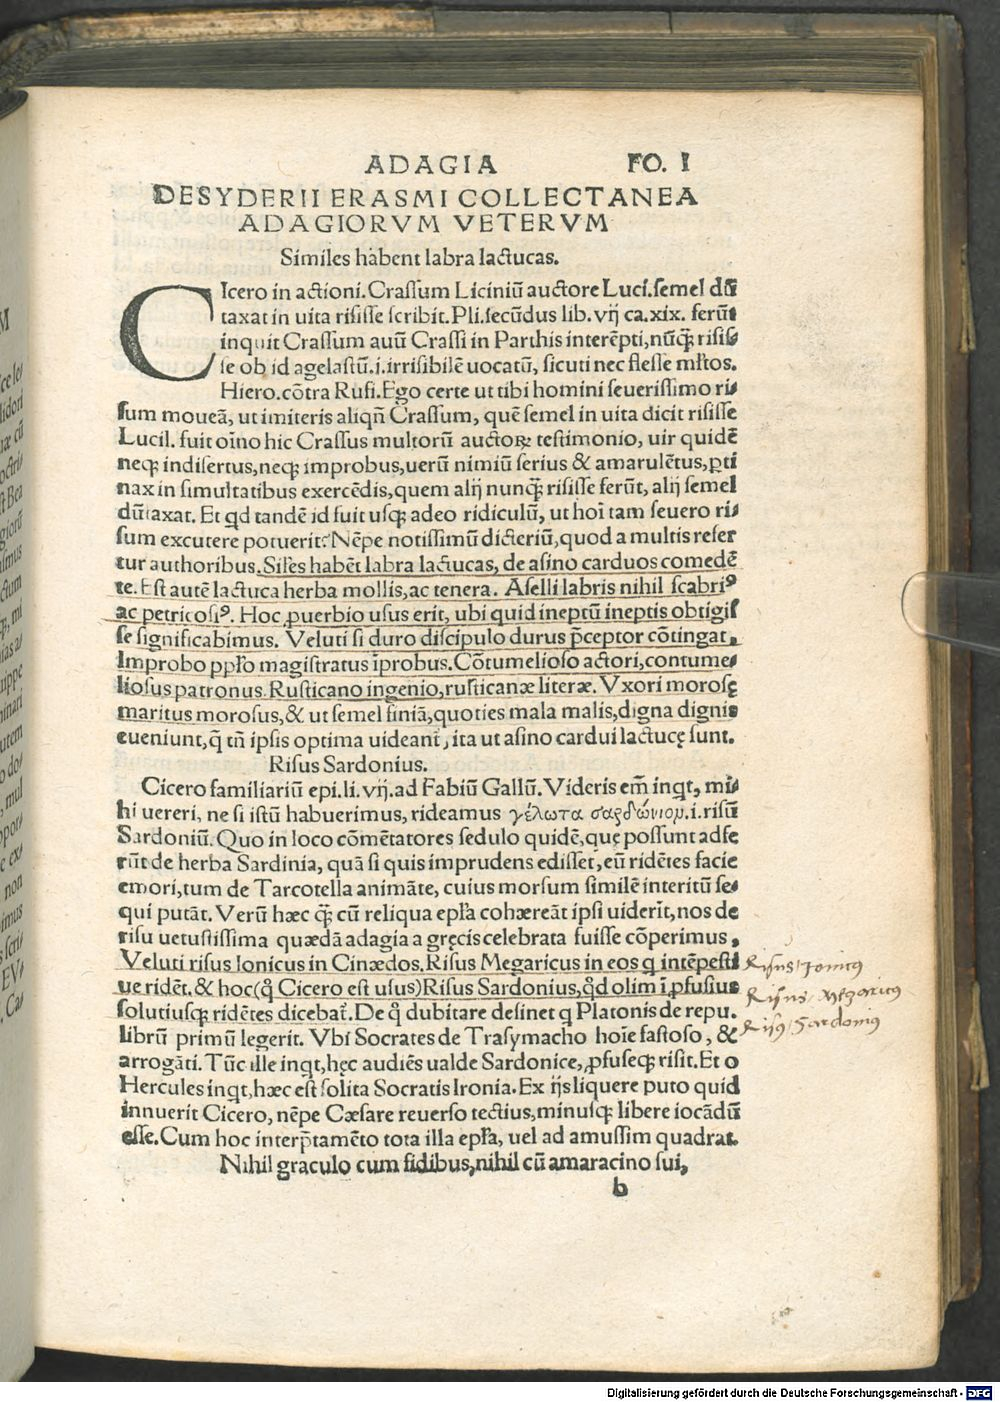 ADAGIA FO. I
DESYDERII ERASMI COLLECTANEA
ADAGIORVM VETERVM
Similes habent labra lactucas.
CIcero in actioni. Crassum Liciniū auctore Luci. semel dū
taxat in uita risisse scribit. Pli. secūdus lib. vij ca. xix. ferūt
inquit Crassum auū Crassi in Parthis interēpti, nūq̄ risis⸗
se ob id agelastū .i. irrisibilē uocatū, sicuti nec flesse młtos.
Hiero. cōtra Rufi. Ego certe ut tibi homini seuerissimo ri⸗
sum moueā, ut imiteris aliqn̄ Crassum, quē semel in uita dicit risisse
Lucil. fuit oīno hic Crassus multorū auctoꝝ testimonio, uir quidē
neqꝫ indisertus, neqꝫ improbus, uerū nimiū serius & amarulētus, ꝑti
nax in simultatibus exercēdis, quem alij nunq̄ risisse ferūt, alij semel
dūtaxat. Et qd tandē id fuit usqꝫ adeo ridiculū, ut hoī tam seuero ri⸗
sum excutere potuerit? Nēpe notissimū dicteriū, quod a multis refer
tur authoribus. Siles habēt labra lactucas, de asino carduos comedē
te. Est autē lactuca herba mollis, ac tenera. Aselli labris nihil scabriꝰ
ac petricosiꝰ. Hoc ꝓuerbio usus erit, ubi quid ineptū ineptis obtigis
se significabimus. Veluti si duro discipulo durus p̄ceptor cōtingat.
Improbo ppło magistratus īprobus. Cōtumelioso actori, contume⸗
liosus patronus. Rusticano ingenio, rusticanæ literæ. Vxori morosę
maritus morosus, & ut semel finiā, quoties mala malis, digna dignis
eueniunt, q̄ tn̄ ipsis optima uideant, ita ut asino cardui lactucę sunt.
Risus Sardonius.
Cicero familiariū epi. li. vij. ad Fabiū Gallū. Videris em̄ inqt, mi⸗
hi uereri, ne si istū habuerimus, rideamus γέλωτα σαρδώνιον .i. risū
Sardoniū. Quo in loco cōmētatores sedulo quidē, quę possunt adfe
rūt de herba Sardinia, quā si quis imprudens edisset, eū ridētes facie
emori, tum de Tarcotella animāte, cuius morsum similē interitū se⸗
qui putāt. Verū hæc q̄ cū reliqua epła cohæreāt ipsi uiderīt, nos de
risu uetustissima quædā adagia a gręcis celebrata fuisse cōperimus,
Veluti risus Ionicus in Cinædos. Risus Megaricus in eos q intēpesti
ue ridēt. & hoc (q̄ Cicero est usus) Risus Sardonius, qd̄ olim ī ꝓfusius
solutiusqꝫ ridētes dicebat. De q̊ dubitare desinet q Platonis de repu.
librū primū legerit. Vbi Socrates de Trasymacho hoīe fastoso, &
arrogāti. Tūc ille inqt, hęc audiēs ualde Sardonice, ꝓfuseqꝫ risit. Et o
Hercules inqt, hæc est solita Socratis Ironia. Ex ijs liquere puto quid
innuerit Cicero, nēpe Cæsare reuerso tectius, minusqꝫ libere iocādū
esse. Cum hoc interp̄tamēto tota illa epła, uel ad amussim quadrat.
Nihil graculo cum fidibus, nihil cū amaracino sui,
b
Risus Ionicus
Risus Megaricus
Risus Sardonius
Digitalisierung gefördert durch die Deutsche Forschungsgemeinschaft - DFG